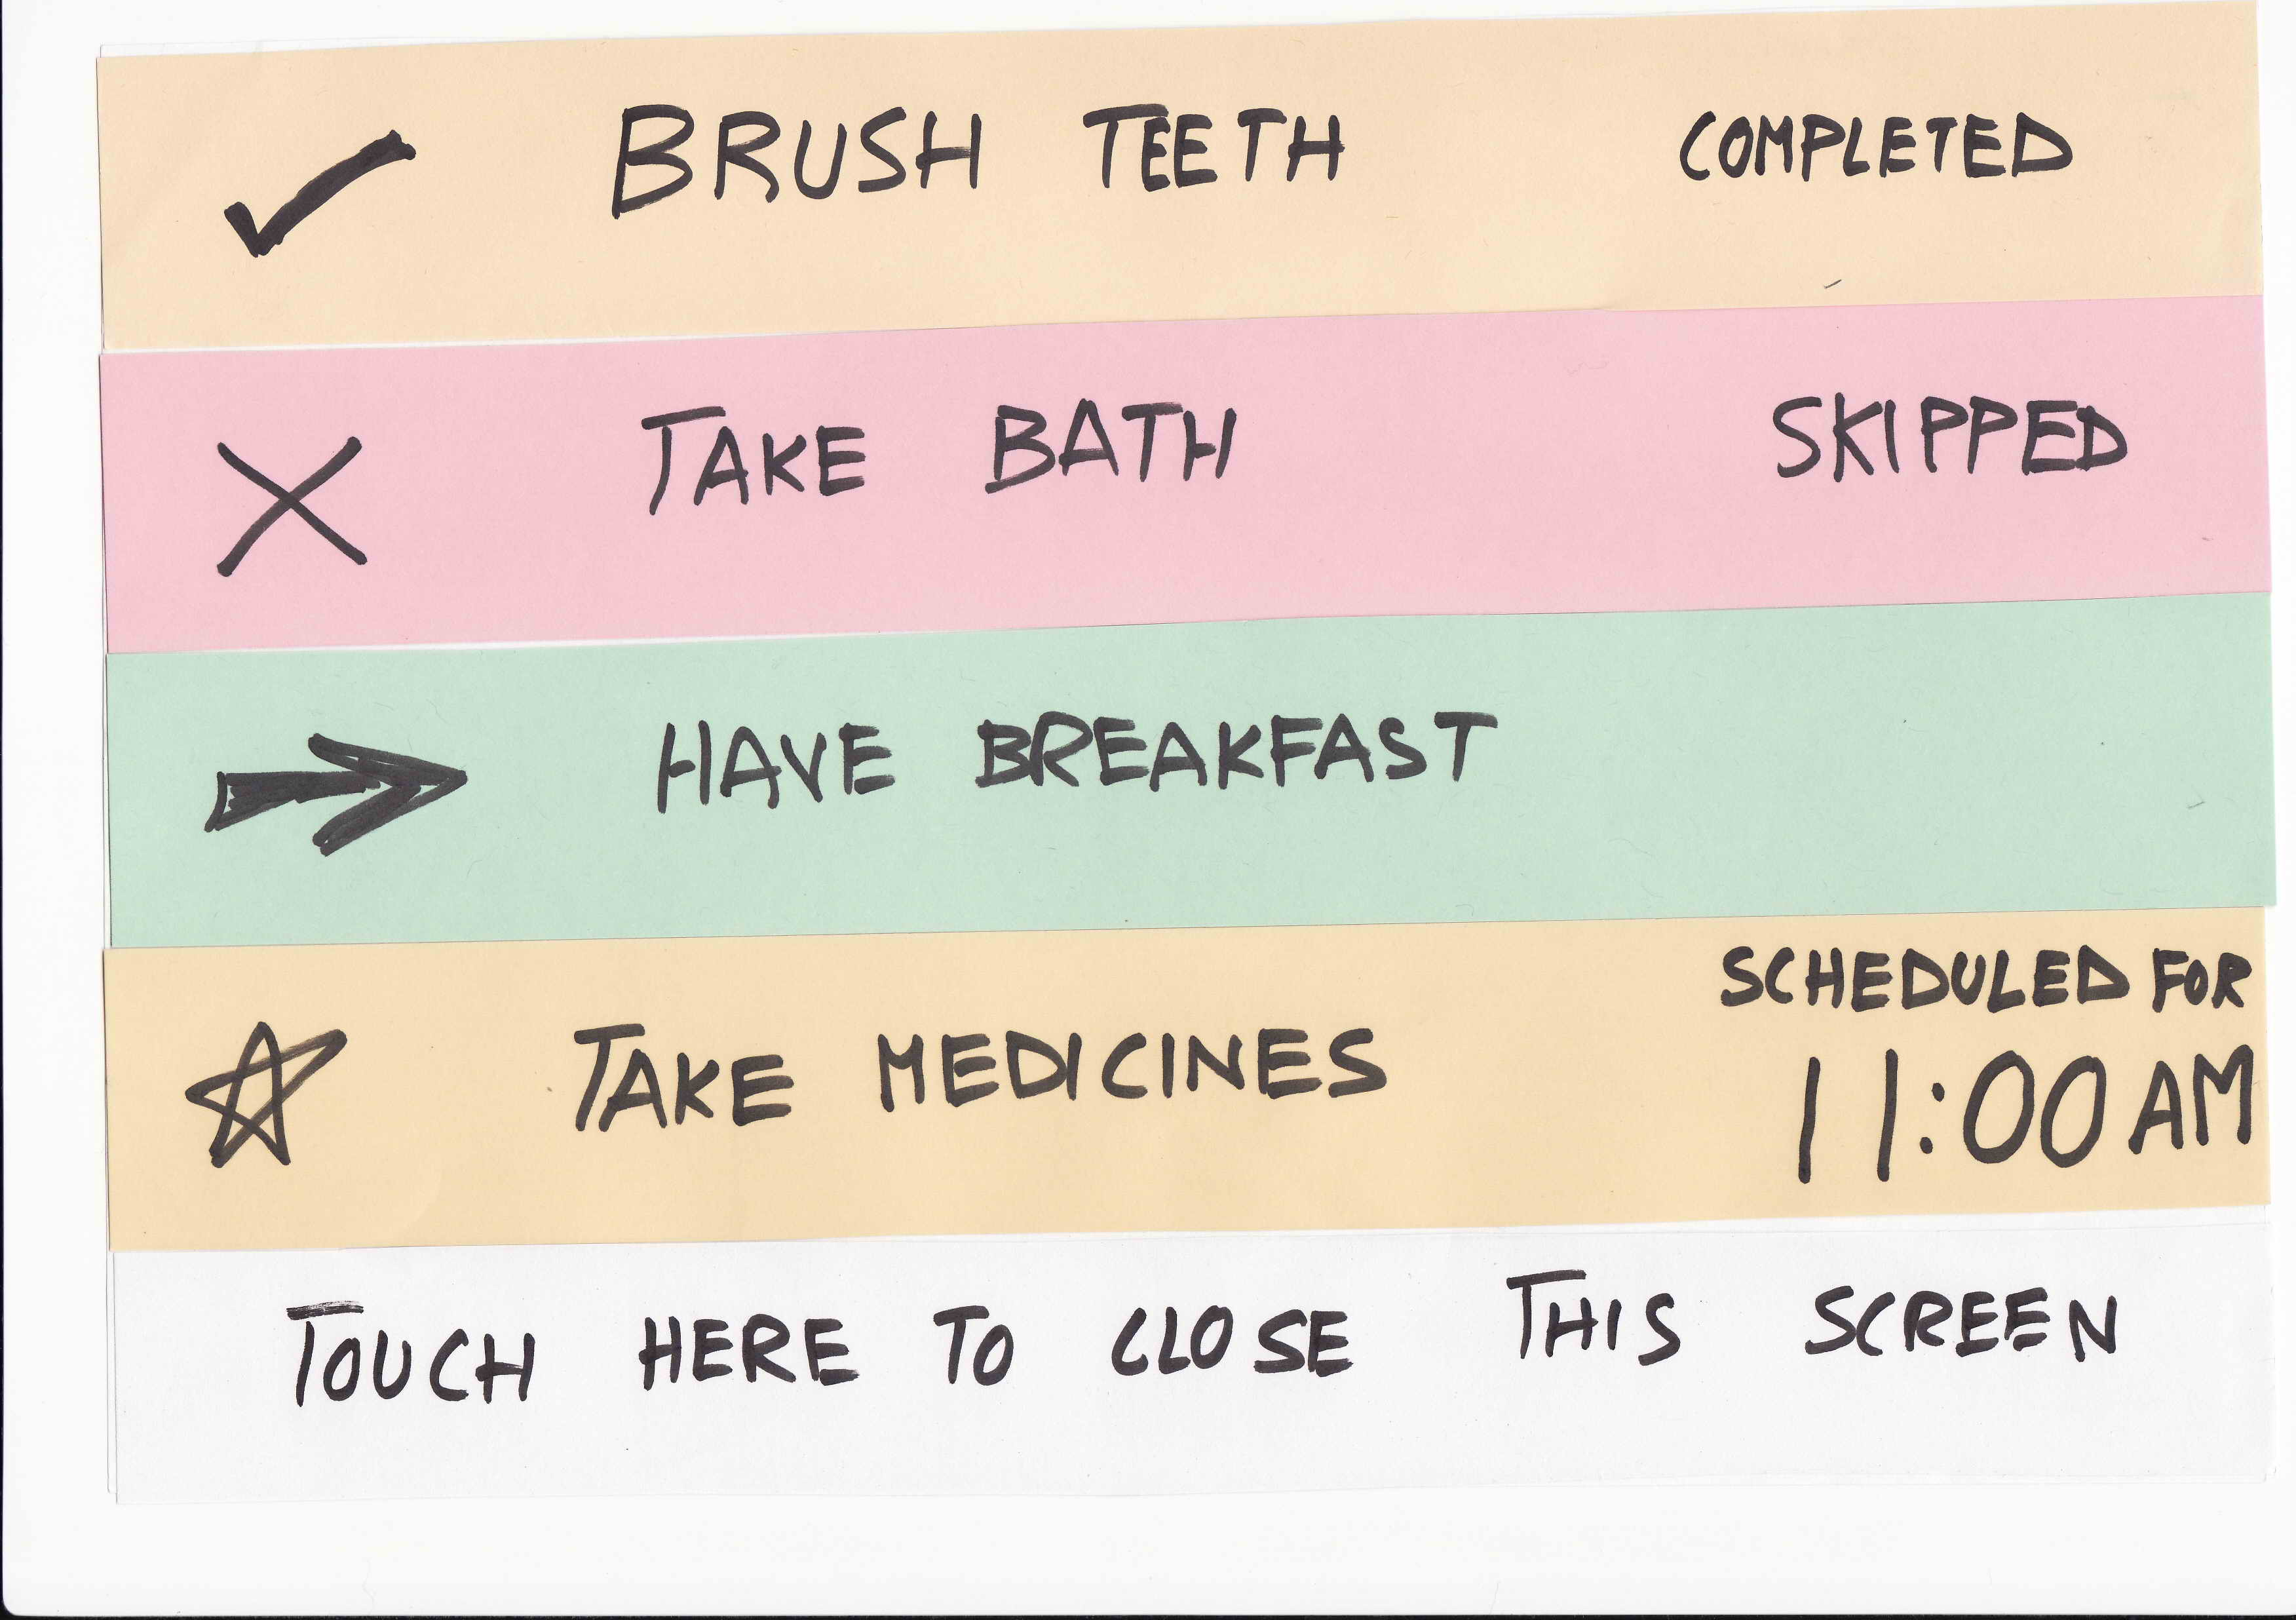 BRUSH TEETH COMPLETED
TAKE BATH SKIPPED
HAVE BREAKFAST
TAKE MEDICINES SCHEDULED FOR
11:00 AM
TOUCH HERE TO CLOSE THIS SCREEN